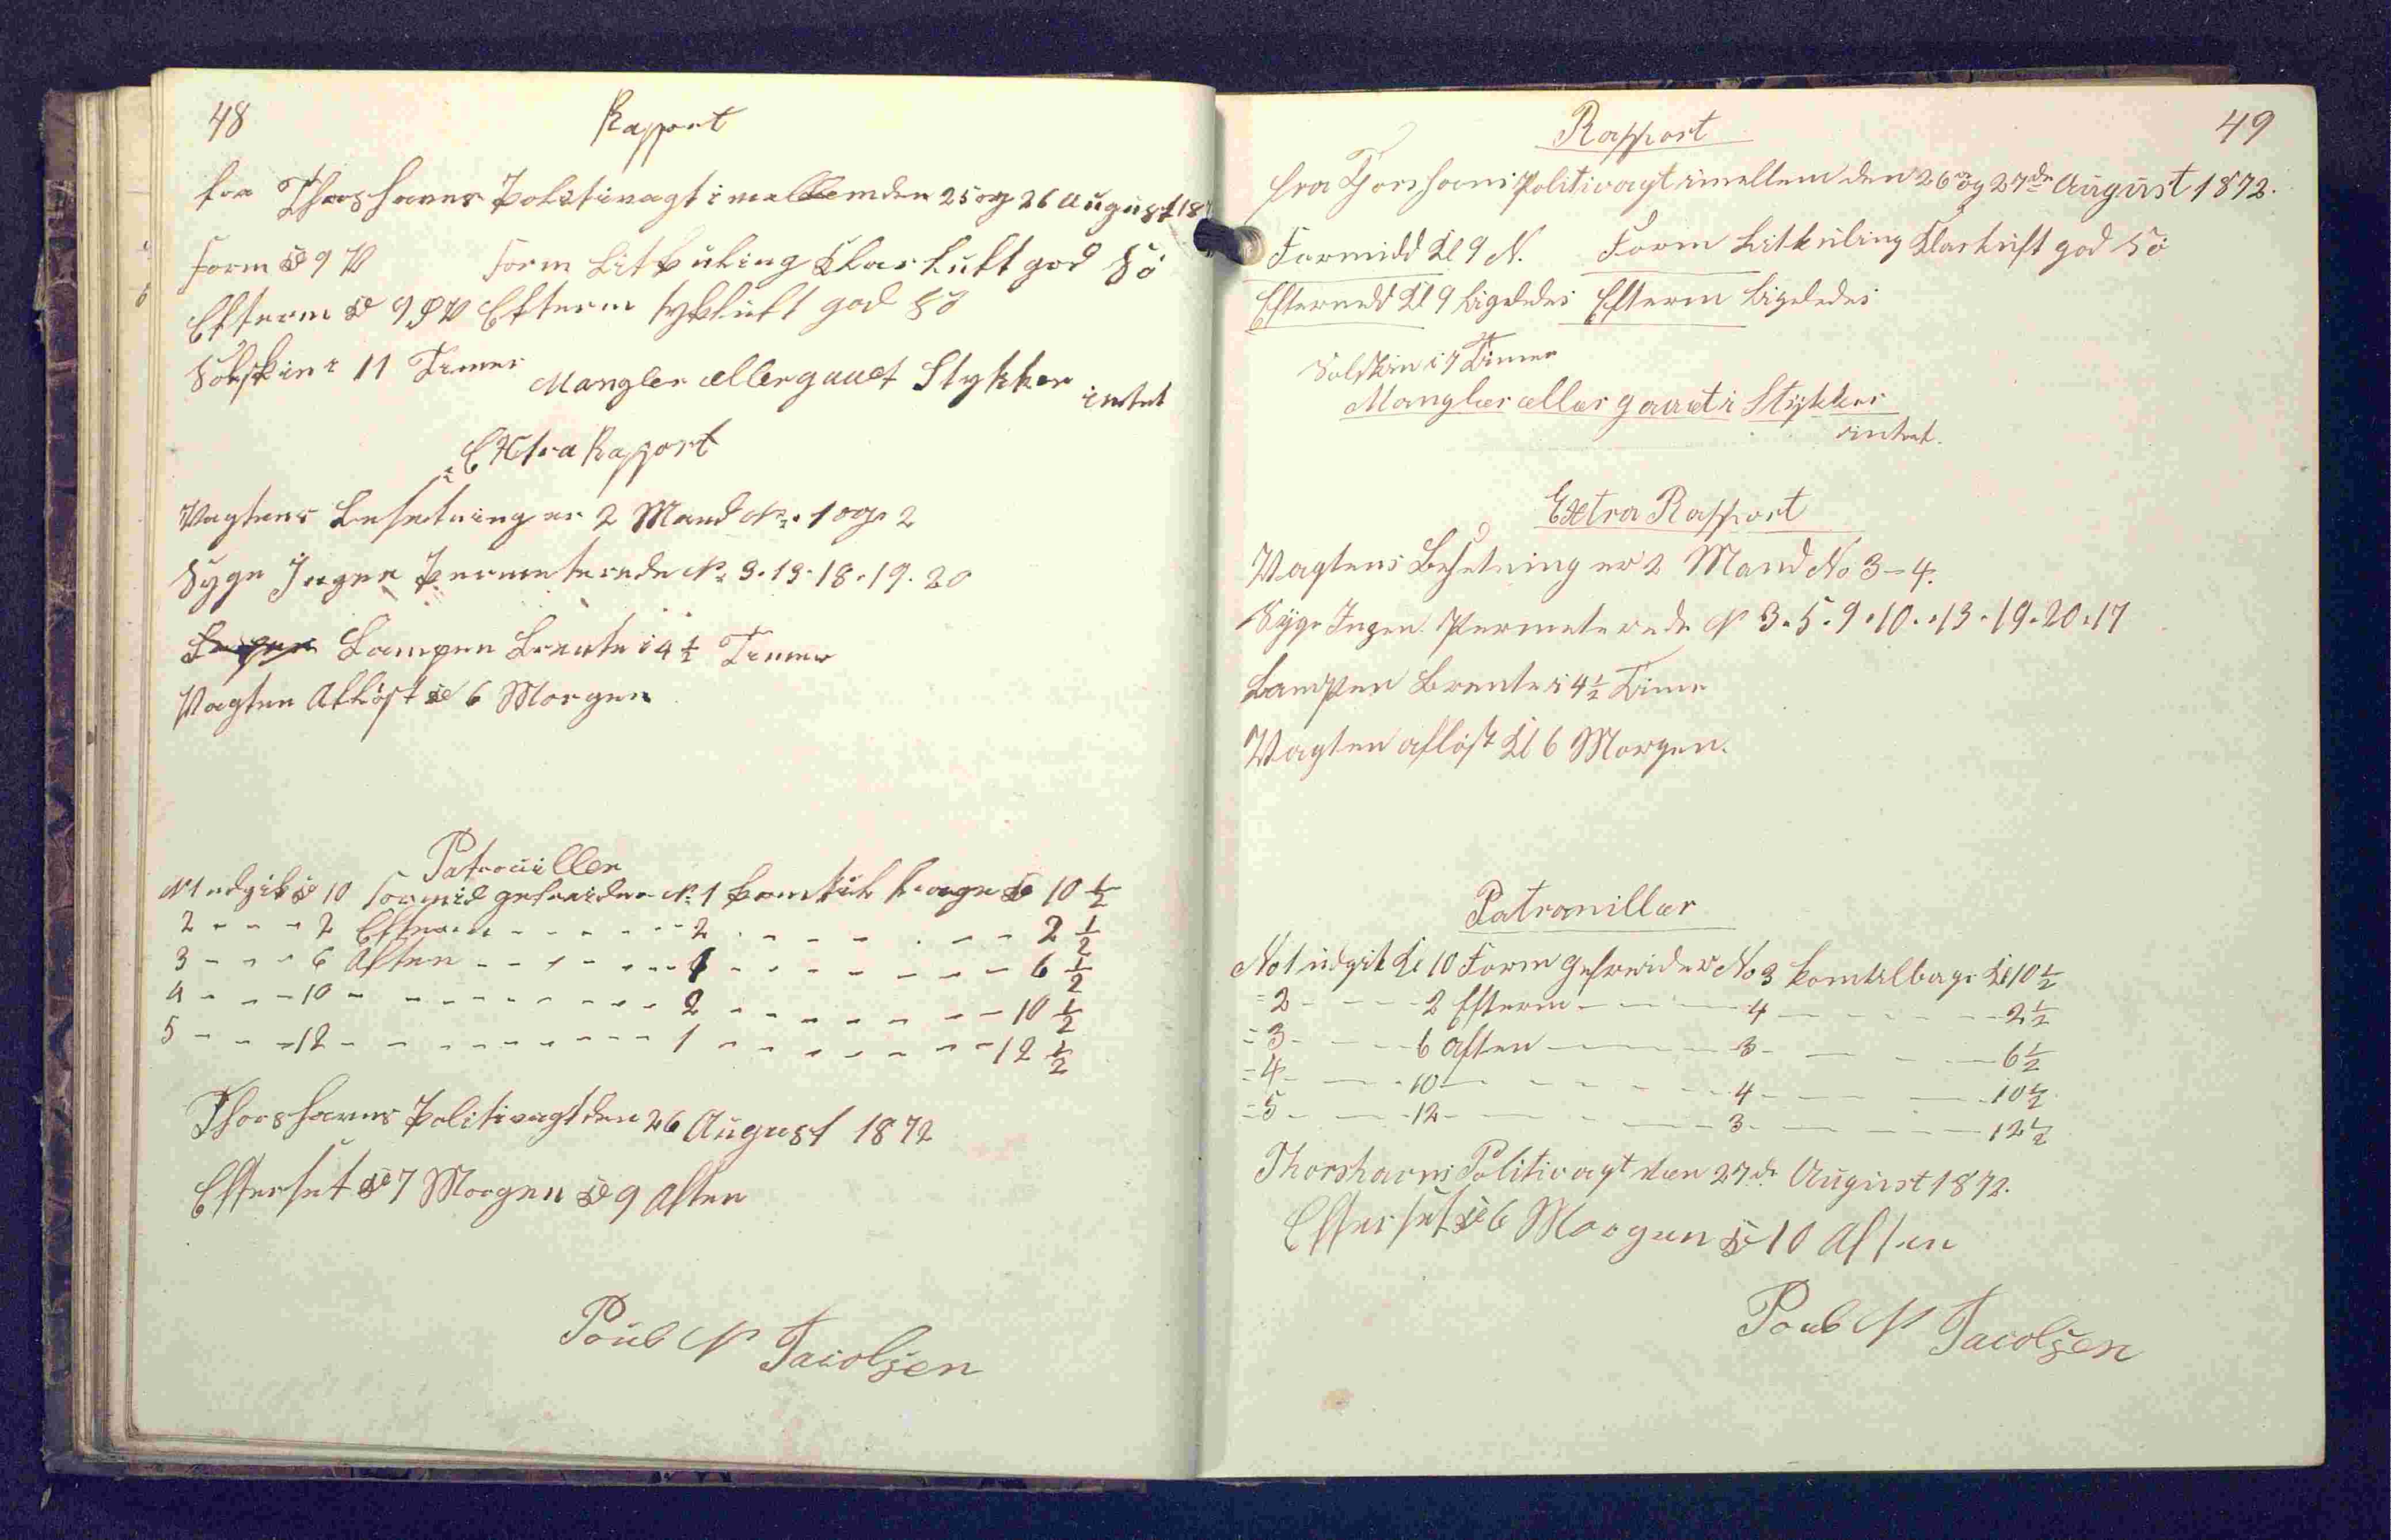 48
Rapport
fra Thorshavns Politivagt imellem den 25 og 26 August 18
Form Kl 9 V Form Litkuling Klarluft god Sö
Efterm Kl 9 Efterm tykluft god Sö
Solskin i 11 Timer
Mangler eller gaaet Stykker
intet
Extra Rapport
Vagtens Besetning er 2 Mand No 1 og 2
Syge Ingen Permeterede No 3. 13. 18. 19. 20
Lampen Brente i 4 1/2 Timer
Vagten Aflöst Kl 6 Morgen
Patrouiller
No 1 udgik Kl 10 Formid gefreider No 1 kom tilbage Kl 10 1/2
2 - - - 2 Efterm - - - - - - 2 - - - - - - - 2 1/2
3 - - - 6 Aften - - - - - - 1 - - - - - - - 6 1/2
4 - - - 10 - - - - - - - - 2 - - - - - - - 10 1/2
5 - - - 12 - - - - - - - - 1 - - - - - - - 12 1/2
Thorshavns Politivagt den 26 August 1872
Efterset Kl 7 Morgen Kl 9 Aften
Poul N Jacobsen
49
Rapport
fra Thorshavns Politivagt imellem den 26 og 27de August 1872.
Formidd Kl 9 N. Form Litkuling Klarluft god Sö
Eftermidd Kl 9 Ligeledes Efterm Ligeledes
Solskin i 7 Timer
Mangler eller gaaet i Stykker
intet.
Extra Rapport
Vagtens Besetning er 2 Mand No 3 - 4.
Syge Ingen. Permeterede N 3. 5. 9. 10. 13. 19. 20. 17
Lampen Brente i 4 1/2 Time
Vagten aflöst Kl 6 Morgen.
Patrouiller
No 1 udgik Kl 10 Form gefreider No 3 kom tilbage Kl 10 1/2
= 2 - - - 2 Efterm - - - 4 - - - - - 2 1/2
= 3 - - - 6 Aften - - - 3 - - - - - 6 1/2
= 4 - - - 10 - - - - - 4 - - - - - 10 1/2
= 5 - - - 12 - - - - - 3 - - - - - 12 1/2
Thorshavns Politivagt den 27de August 1872.
Efterset Kl 6 Morgen Kl 10 Aften
Poul N Jacobsen